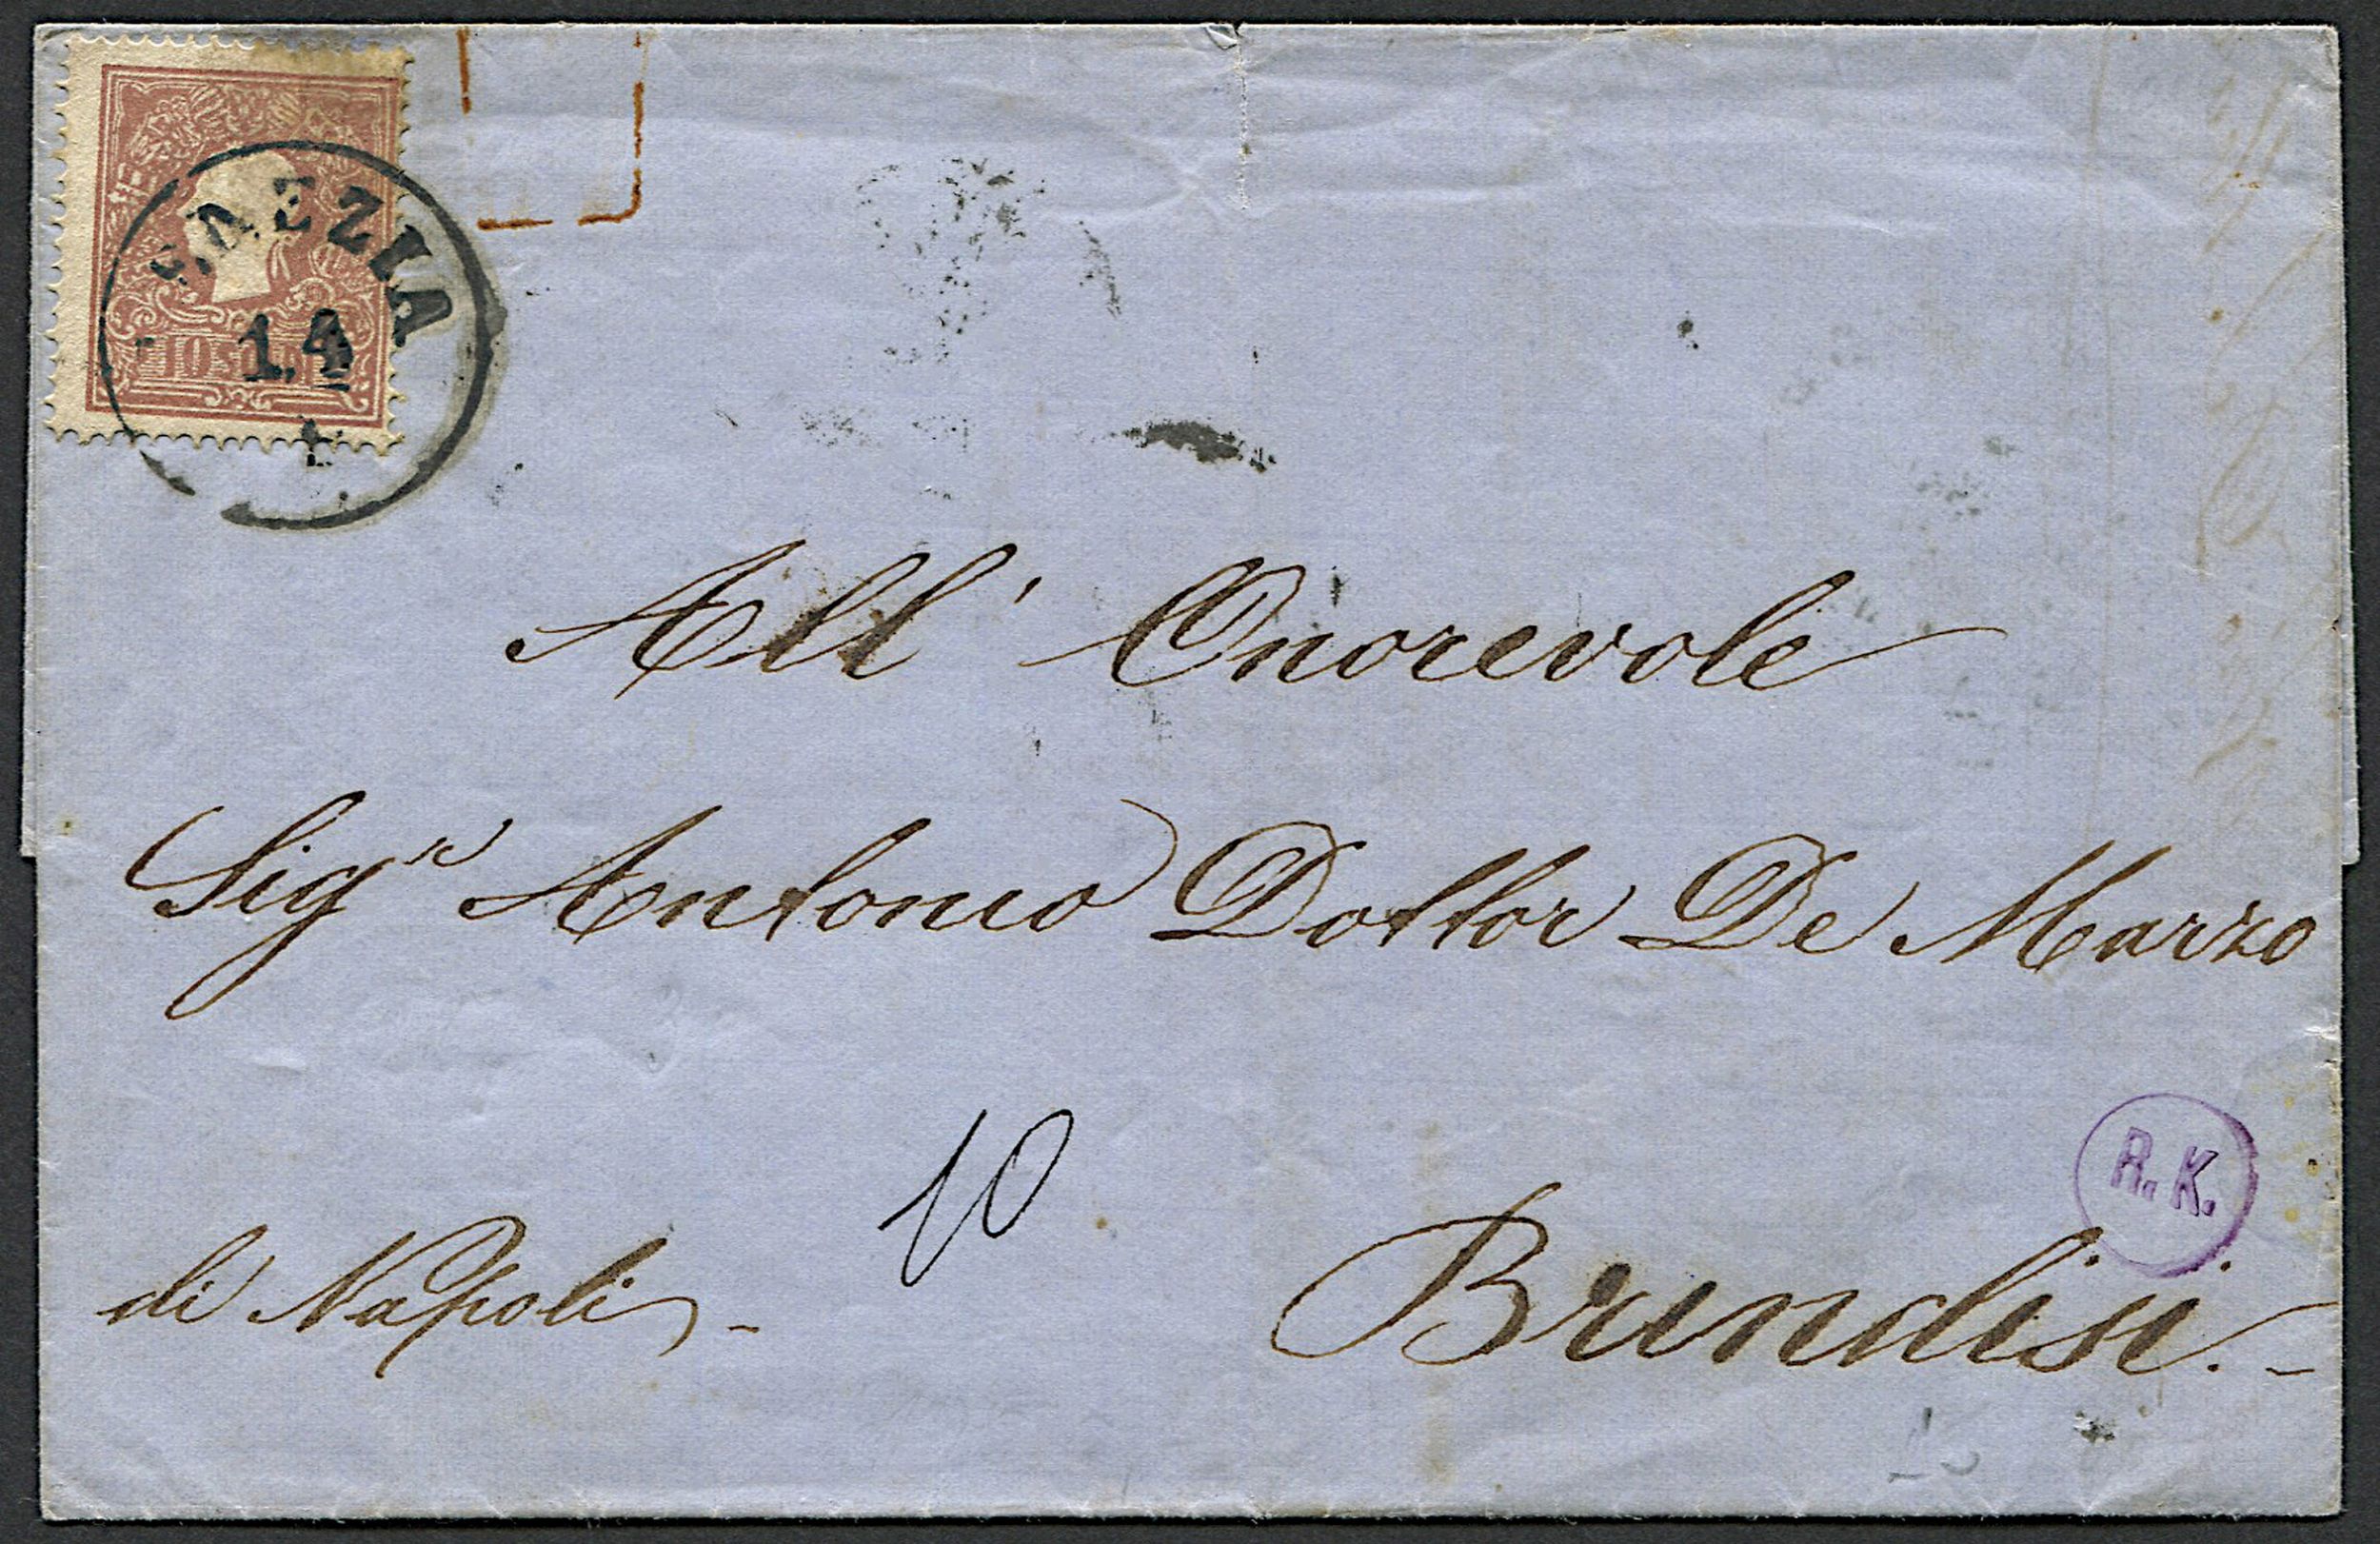 10 SOLDI
14
All' Onorevole
Sigr Antonio Dottor De Marzo
R.K.
10
di Napoli - Brindisi. -